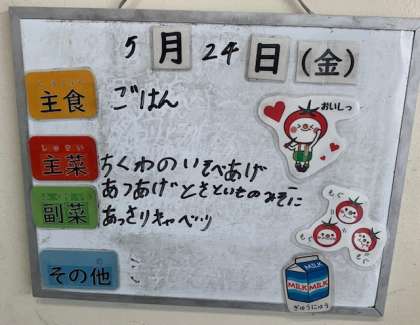 5月24日(金)
主食 ごはん
主菜 ちくわのいそべあげ
あつあげとさといものみそに
副菜 あっさりキャベツ
その他
おいしっ
もぐ
もぐ
もぐ
MILK
MILK
ぎゅうにゅう